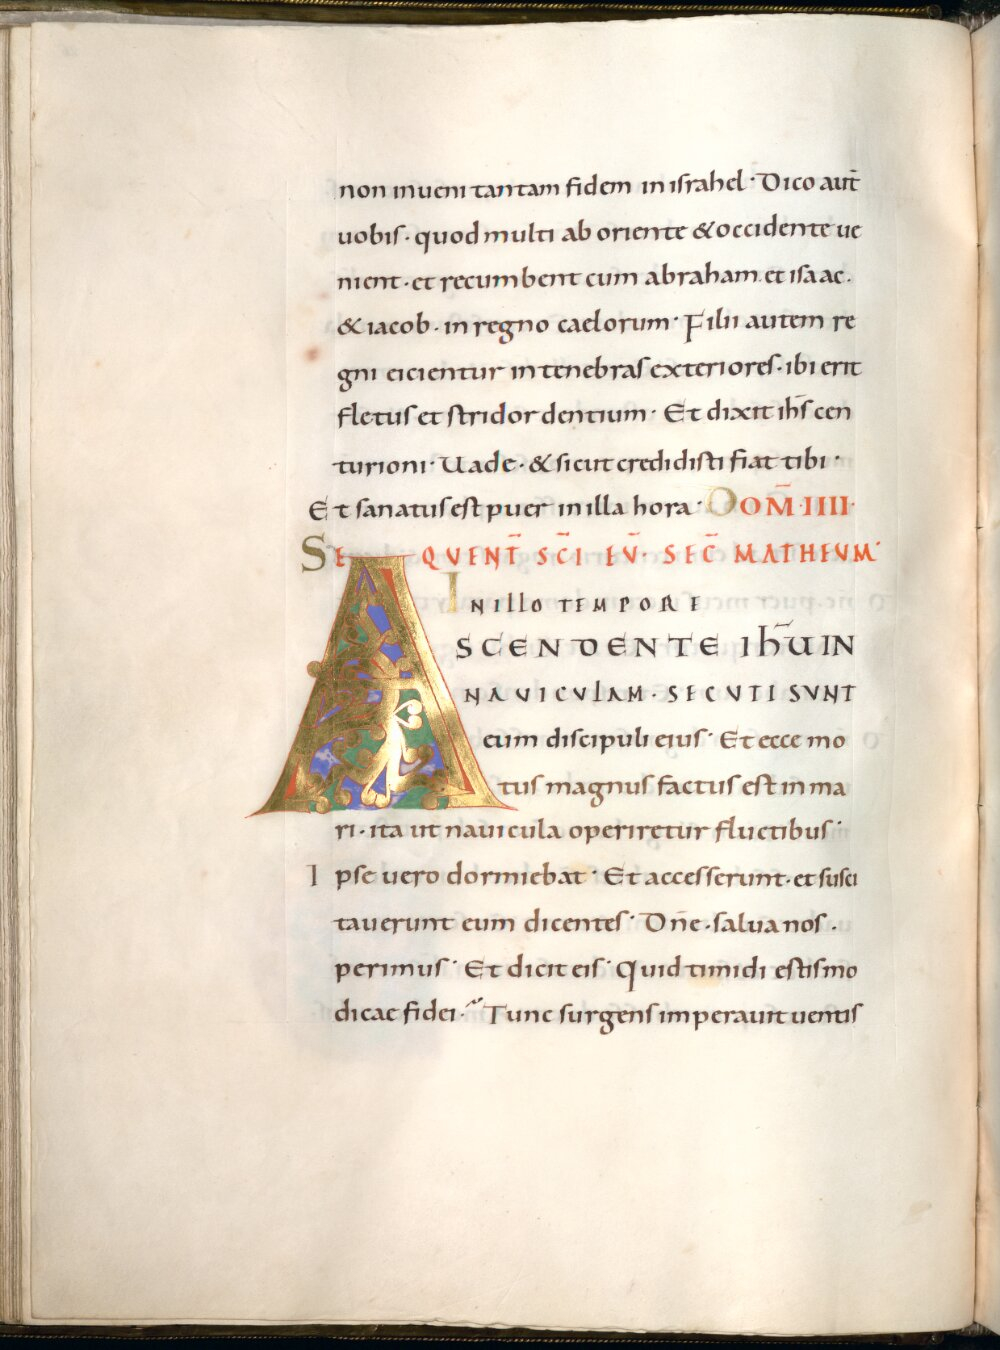 non inueni tantam fidem in israhel · Dico aut̄
uobis · quod multi ab oriente & occidente ue
nient · et recumbent cum abraham · et isaac ·
& iacob · in regno caelorum · Filii autem re
gni eicientur in tenebras exteriores · ibi erit
fletus et stridor dentium · Et dixit ih̄s cen
turioni · Uade · & sicut credidisti fiat tibi ·
Et sanatus est puer in illa hora · DOM̄ · IIII ·
SEQUENT̄ SC̄I EŪ · SEC̄ MATHEUM ·
IN ILLO TEMPORE
ASCENDENTE IHŪ IN
NAVICULAM · SECUTI SUNT
eum discipuli eius · Et ecce mo
tus magnus factus est in ma
ri · ita ut nauicula operiretur fluctibus ·
Ipse uero dormiebat · Et accesserunt · et susci
tauerunt eum dicentes · Dn̄e · salua nos ·
perimus · Et dicit eis · Quid timidi estis mo
dicae fidei · Tunc surgens imperauit uentis